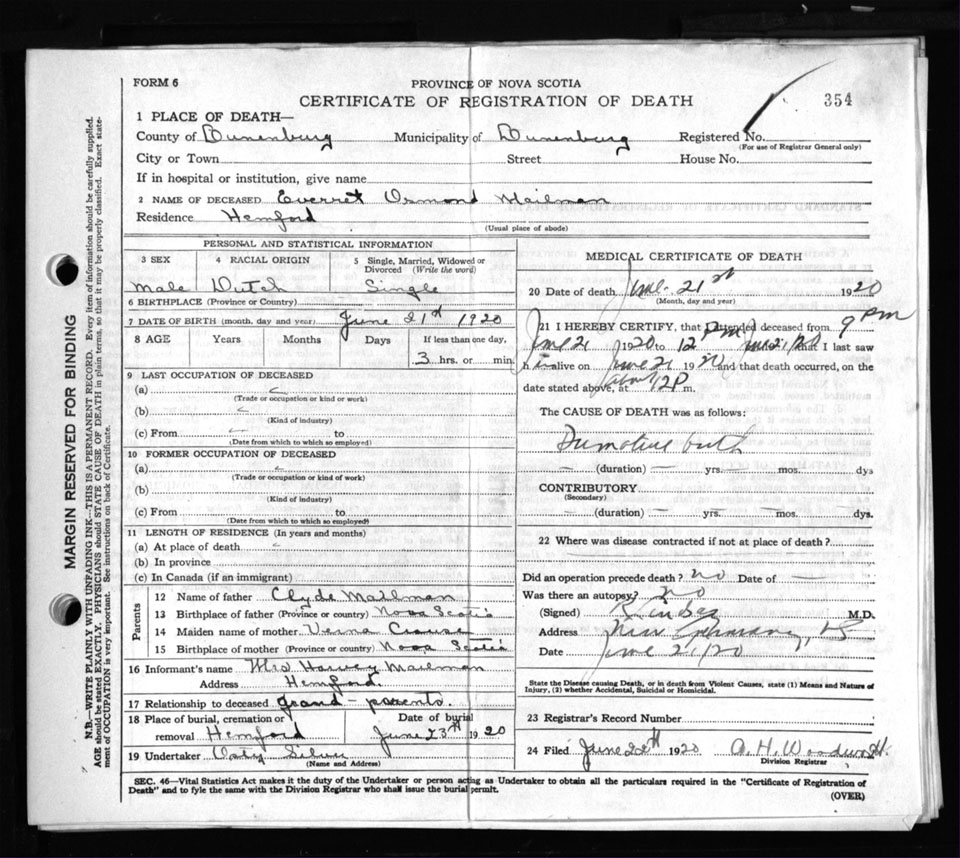 FORM 6
PROVINCE OF NOVA SCOTIA
CERTIFICATE OF REGISTRATION OF DEATH
354
1 PLACE OF DEATH—
County of Lunenburg Municipality of Lunenburg Registered No.
(For use of Registrar General only)
City or Town Street House No.
If in hospital or institution, give name
2 NAME OF DECEASED Everret Osmond Mailman
Residence Hemford
(Usual place of abode)
PERSONAL AND STATISTICAL INFORMATION
3 SEX 4 RACIAL ORIGIN 5 Single, Married, Widowed or Divorced (Write the word)
Male Dutch Single
6 BIRTHPLACE (Province or Country)
7 DATE OF BIRTH (month, day and year) June 21st 1920
8 AGE Years Months Days If less than one day,
3 hrs. or min.
9 LAST OCCUPATION OF DECEASED
(a)
(Trade or occupation or kind or work)
(b)
(Kind of industry)
(c) From to
(Date from which to which so employed)
10 FORMER OCCUPATION OF DECEASED
(a)
(Trade or occupation or kind of work)
(b)
(Kind of industry)
(c) From to
(Date from which to which so employed)
11 LENGTH OF RESIDENCE (In years and months)
(a) At place of death
(b) In province
(c) In Canada (if an immigrant)
Parents
12 Name of father Clyde Mailman
13 Birthplace of father (Province or country) Nova Scotia
14 Maiden name of mother Verna Crouse
15 Birthplace of mother (Province or country) Nova Scotia
16 Informant's name Mrs Harvey Mailman
Address Hemford
17 Relationship to deceased grand-parents.
18 Place of burial, cremation or removal Hemford Date of burial June 23th 1920
19 Undertaker Silver
(Name and Address)
MEDICAL CERTIFICATE OF DEATH
20 Date of death June 21st 1920
(Month, day and year)
21 I HEREBY CERTIFY, that I attended deceased from 9 PM
June 21 1920 to 12 PM June 21/20 that I last saw
h alive on June 21 1920 and that death occurred, on the
date stated above, at about 12 P m.
The CAUSE OF DEATH was as follows:
birth
(duration) yrs. mos. dys
CONTRIBUTORY
(Secondary)
(duration) yrs. mos. dys.
22 Where was disease contracted if not at place of death?
Did an operation precede death? no Date of
Was there an autopsy? no
(Signed) M.D.
Address New Germany, NS
Date June 21/20
State the Disease causing Death, or in death from Violent Causes, state (1) Means and Nature of
Injury, (2) whether Accidental, Suicidal or Homicidal.
23 Registrar's Record Number
24 Filed June 1920
Division Registrar
SEC. 46—Vital Statistics Act makes it the duty of the Undertaker or person acting as Undertaker to obtain all the particulars required in the "Certificate of Registration of
Death" and to fyle the same with the Division Registrar who shall issue the burial permit.
(OVER)
MARGIN RESERVED FOR BINDING
N.B.—WRITE PLAINLY WITH UNFADING INK—THIS IS A PERMANENT RECORD. Every item of information should be carefully supplied.
AGE should be stated EXACTLY. PHYSICIANS should STATE CAUSE OF DEATH in plain terms, so that it may be properly classified. Exact statement of OCCUPATION is very important. See instructions on back of Certificate.